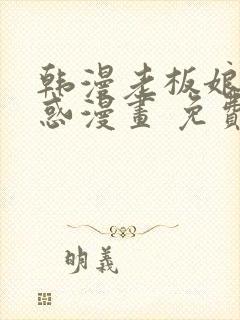 韩漫老板娘
惑漫畫 免費
明義